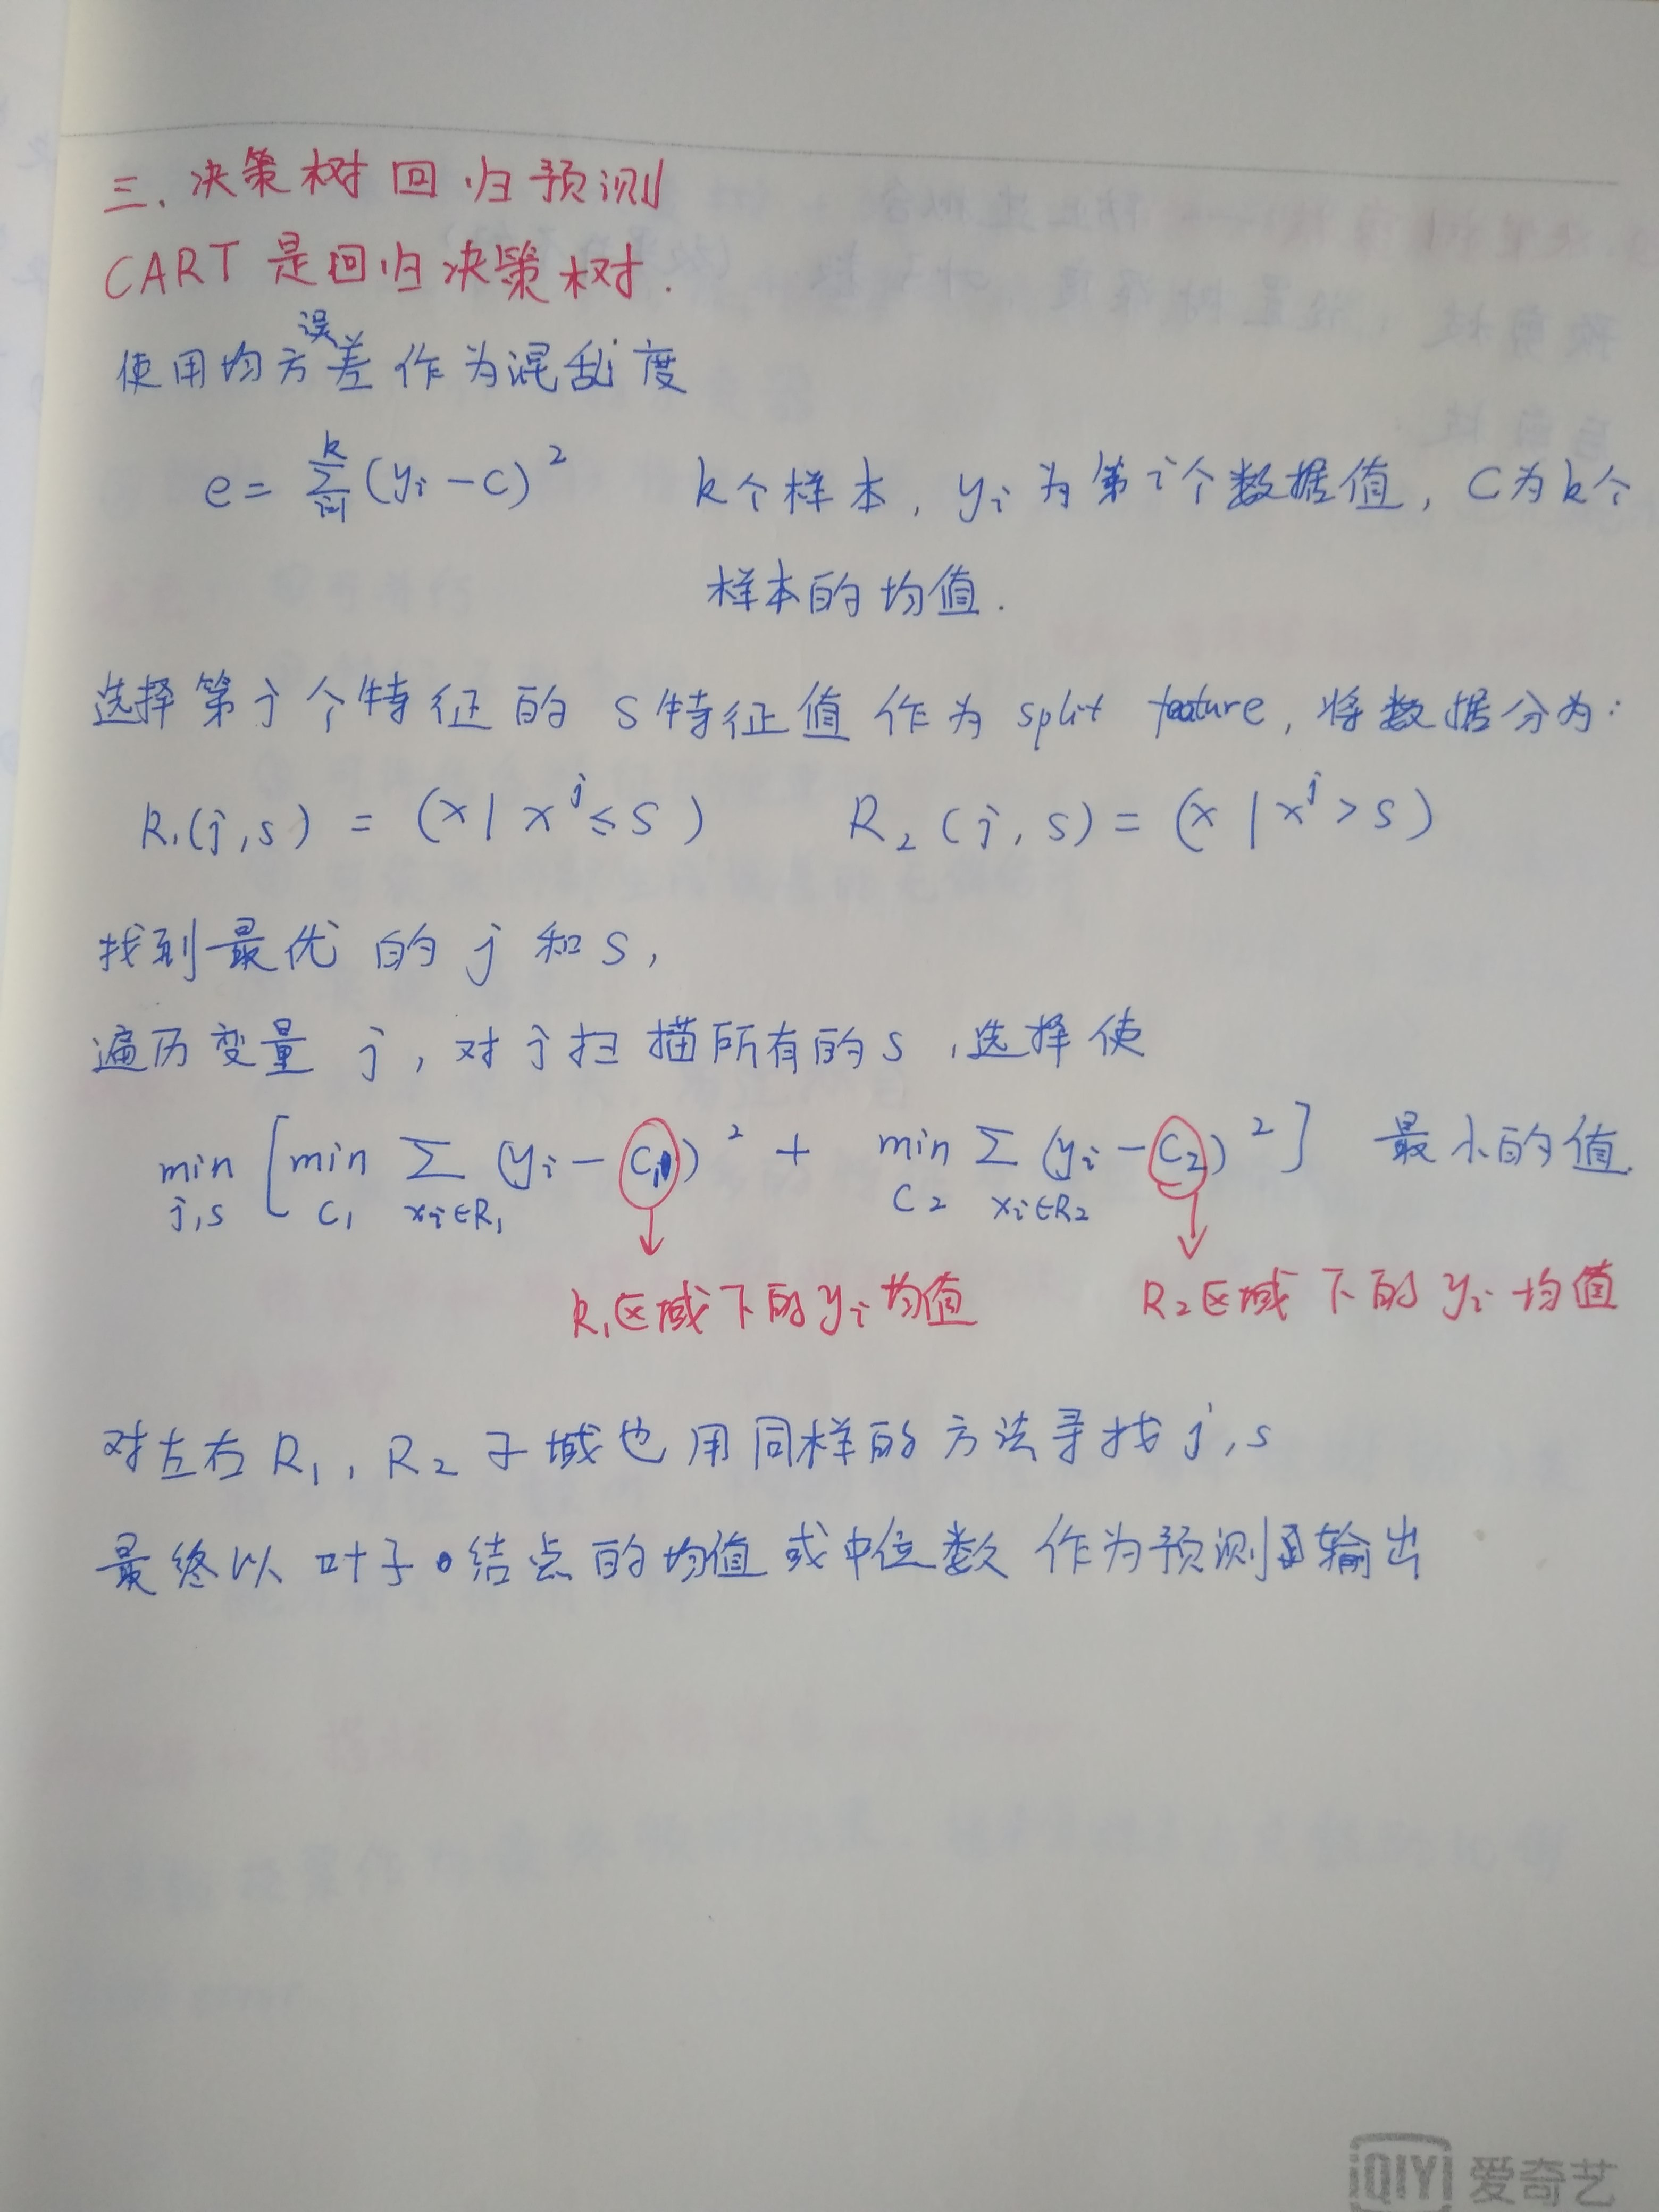 三、决策树回归预测
CART是回归决策树.
使用均方误差作为混乱度
e = ∑_{i=1}^{k} (yᵢ - c)²  k个样本, yᵢ为第i个数据值, C为k个
样本的均值.
选择第j个特征的S特征值作为split feature, 将数据分为:
R₁(j,s) = (x | x^j ≤ s)  R₂(j,s) = (x | x^j > s)
找到最优的j和s,
遍历变量j, 对j扫描所有的s,选择使
min_{j,s} [ min_{C₁} ∑_{xᵢ∈R₁} (yᵢ - C₁)² + min_{C₂} ∑_{xᵢ∈R₂} (yᵢ - C₂)² ] 最小的值.
R₁区域下的yᵢ均值  R₂区域下的yᵢ均值
对左右R₁, R₂子域也用同样的方法寻找j,s
最终以叶子结点的均值或中位数作为预测输出
iQIYI 爱奇艺